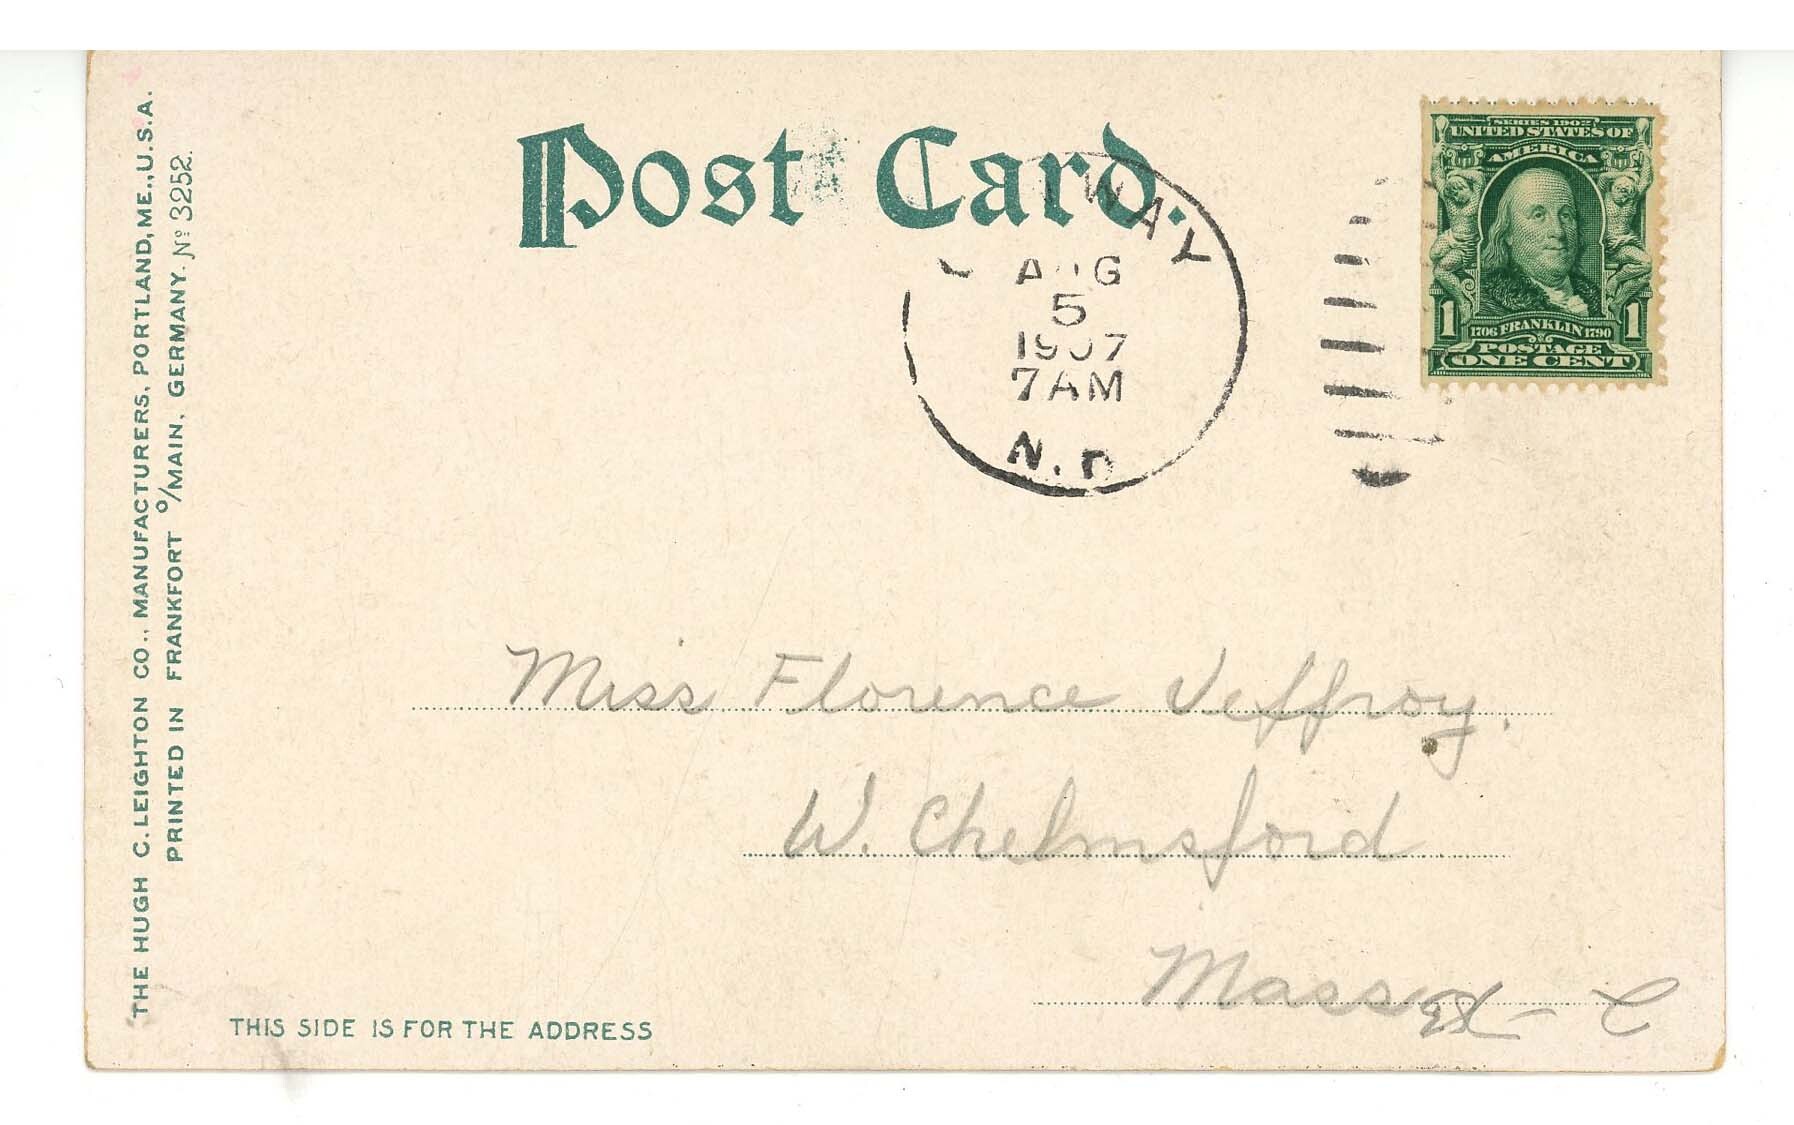 THE HUGH C. LEIGHTON CO., MANUFACTURERS, PORTLAND, ME., U.S.A.
PRINTED IN FRANKFORT O/MAIN, GERMANY. No 3252.
Post Card.
WAY
AUG
5
1907
7 AM
N.
SERIES 1902
UNITED STATES OF
AMERICA
1706 FRANKLIN 1790
1 1
POSTAGE
ONE CENT
Miss Florence Jeffroy.
W. Chelmsford
Mass
THIS SIDE IS FOR THE ADDRESS